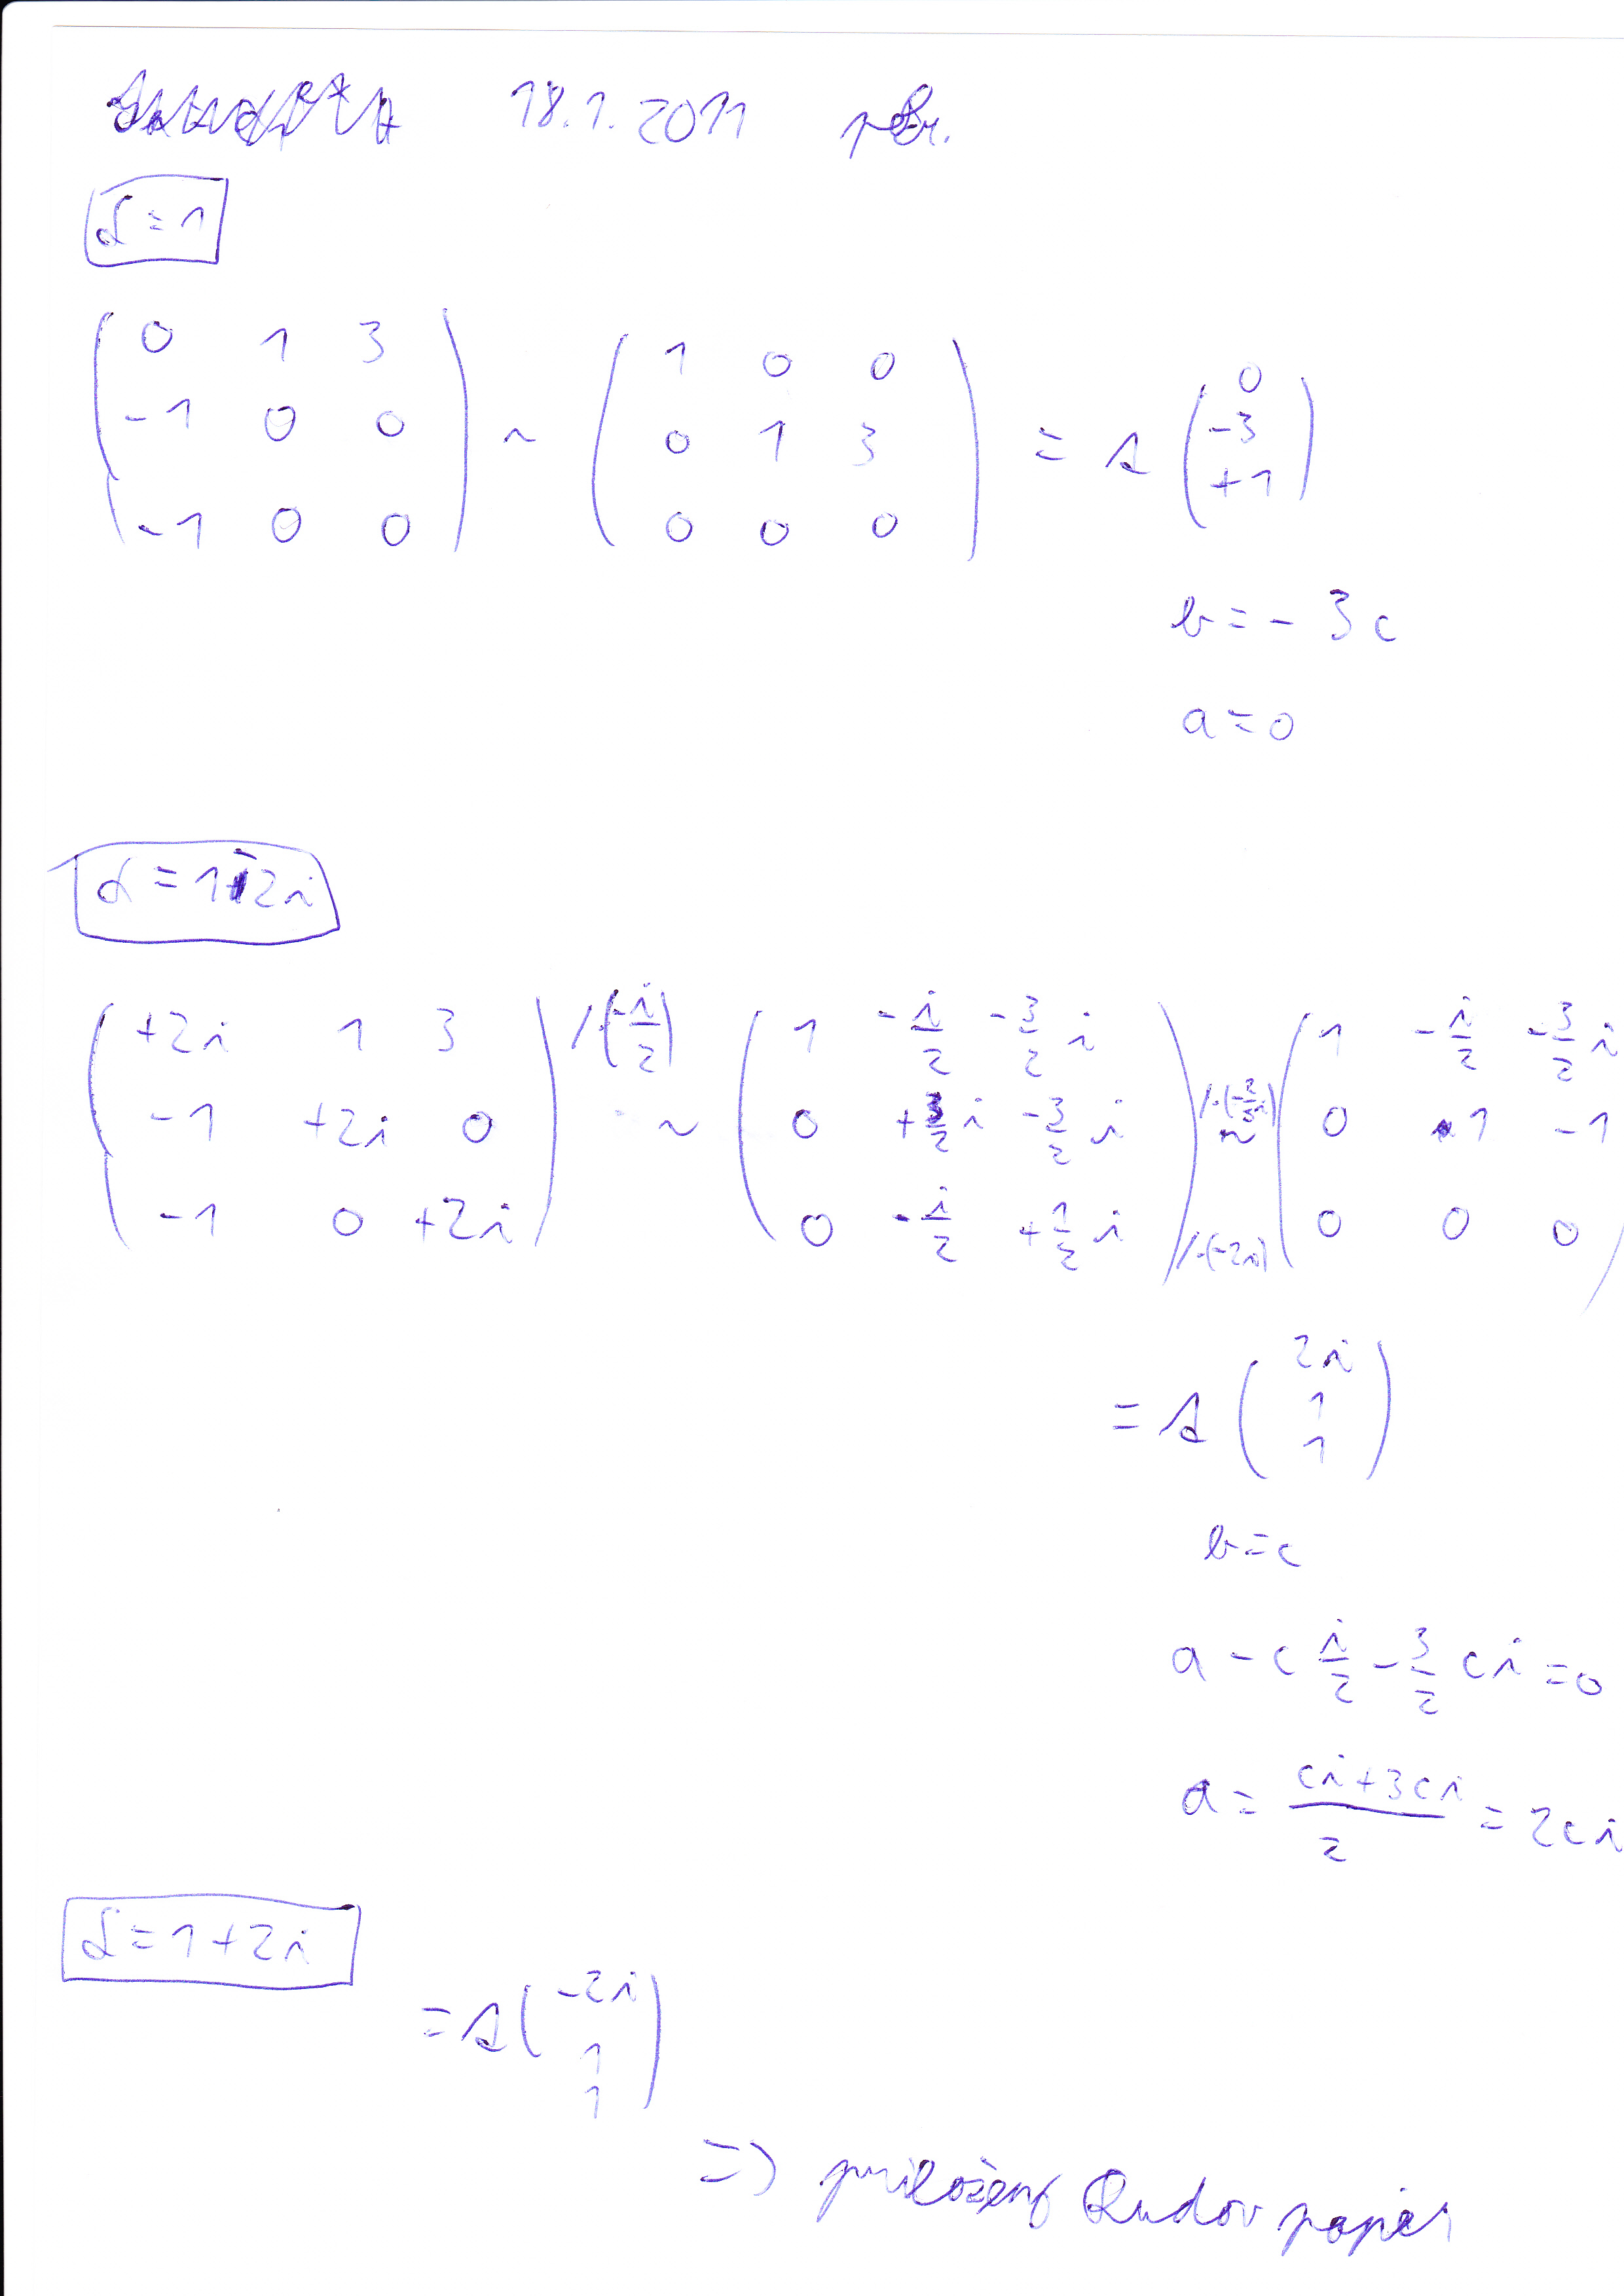 18.1.2011
α=1
( 0 1 3 ; -1 0 0 ; -1 0 0 ) ~ ( 1 0 0 ; 0 1 3 ; 0 0 0 ) = s ( 0 ; -3 ; +1 )
b = -3c
a = 0
α = 1-2i
( +2i 1 3 ; -1 +2i 0 ; -1 0 +2i ) /·(-i/2) ~ ( 1 -i/2 -3/2 i ; 0 +3/2 i -3/2 i ; 0 -i/2 +1/2 i ) /·(-2/3 i) ~ /·(-2i) ( 1 -i/2 -3/2 i ; 0 1 -1 ; 0 0 0 )
= s ( 2i ; 1 ; 1 )
b=c
a - c i/2 - 3/2 ci = 0
a = (ci+3ci)/2 = 2ci
α=1+2i
= s ( -2i ; 1 ; 1 )
=> priložený Ľudov papier